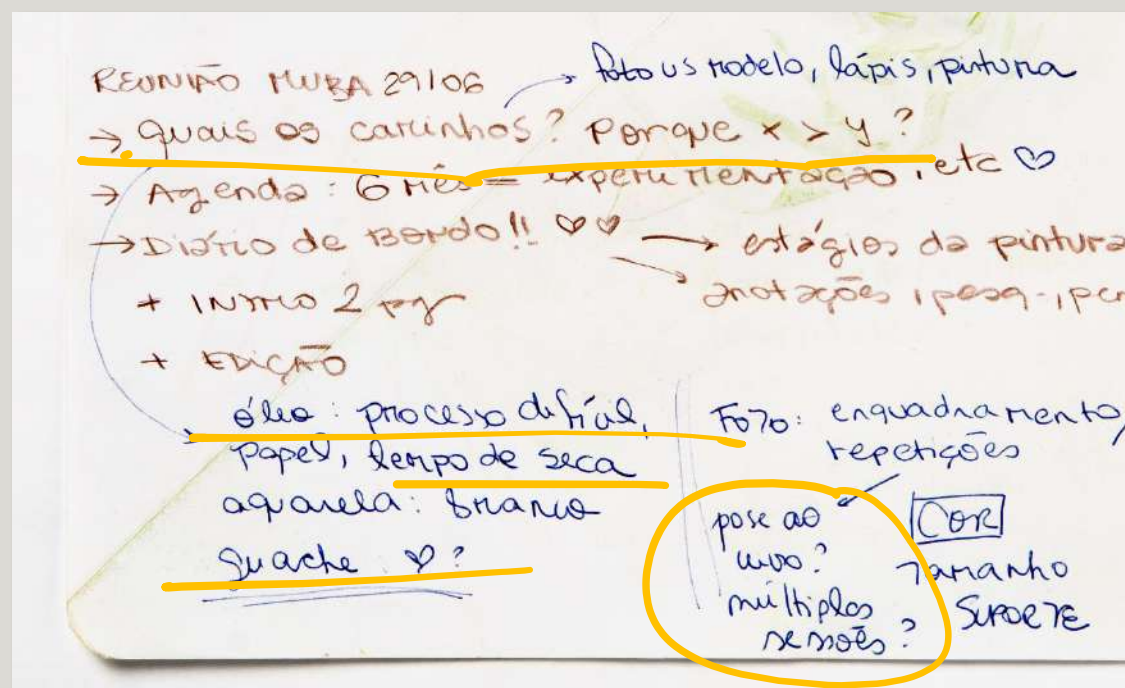 REUNIÃO MUBA 29/06
foto us modelo, lápis, pintura
→ quais os caminhos? Porque x > y?
→ Agenda: 6 mês = experimentação, etc ♡
→ Diário de BORDO!! ♡♡
→ estágios da pintura
→ anotações, pesq.,
+ INTRO 2 pg
+ EDIÇÃO
óleo: processo difícil,
papel, tempo de seca
aquarela: branco
guache ♡?
FOTO: enquadramento,
repetições
pose ao
vivo?
múltiplas
sessões?
COR
TAMANHO
SUPORTE